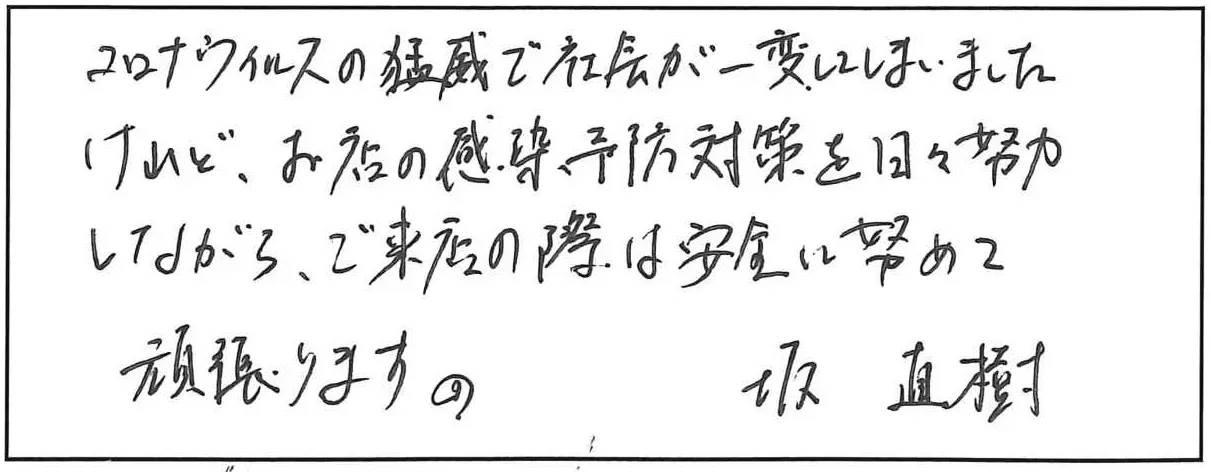 コロナウイルスの猛威で社長が一変してしまいました
けれど、お店の感染予防対策を日々努力
しながら、ご来店の際は安全に努めて
頑張ります
坂 直樹